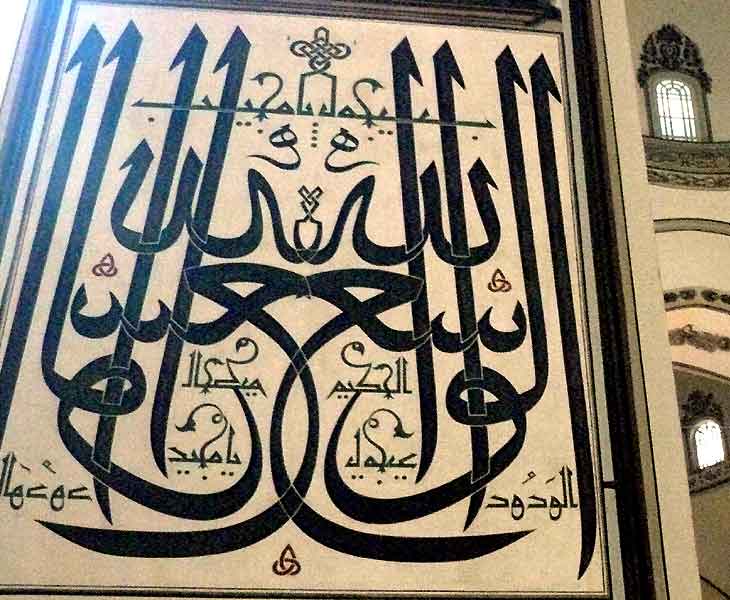 الله
الواسع
الحكيم
يا مجيد
الودود